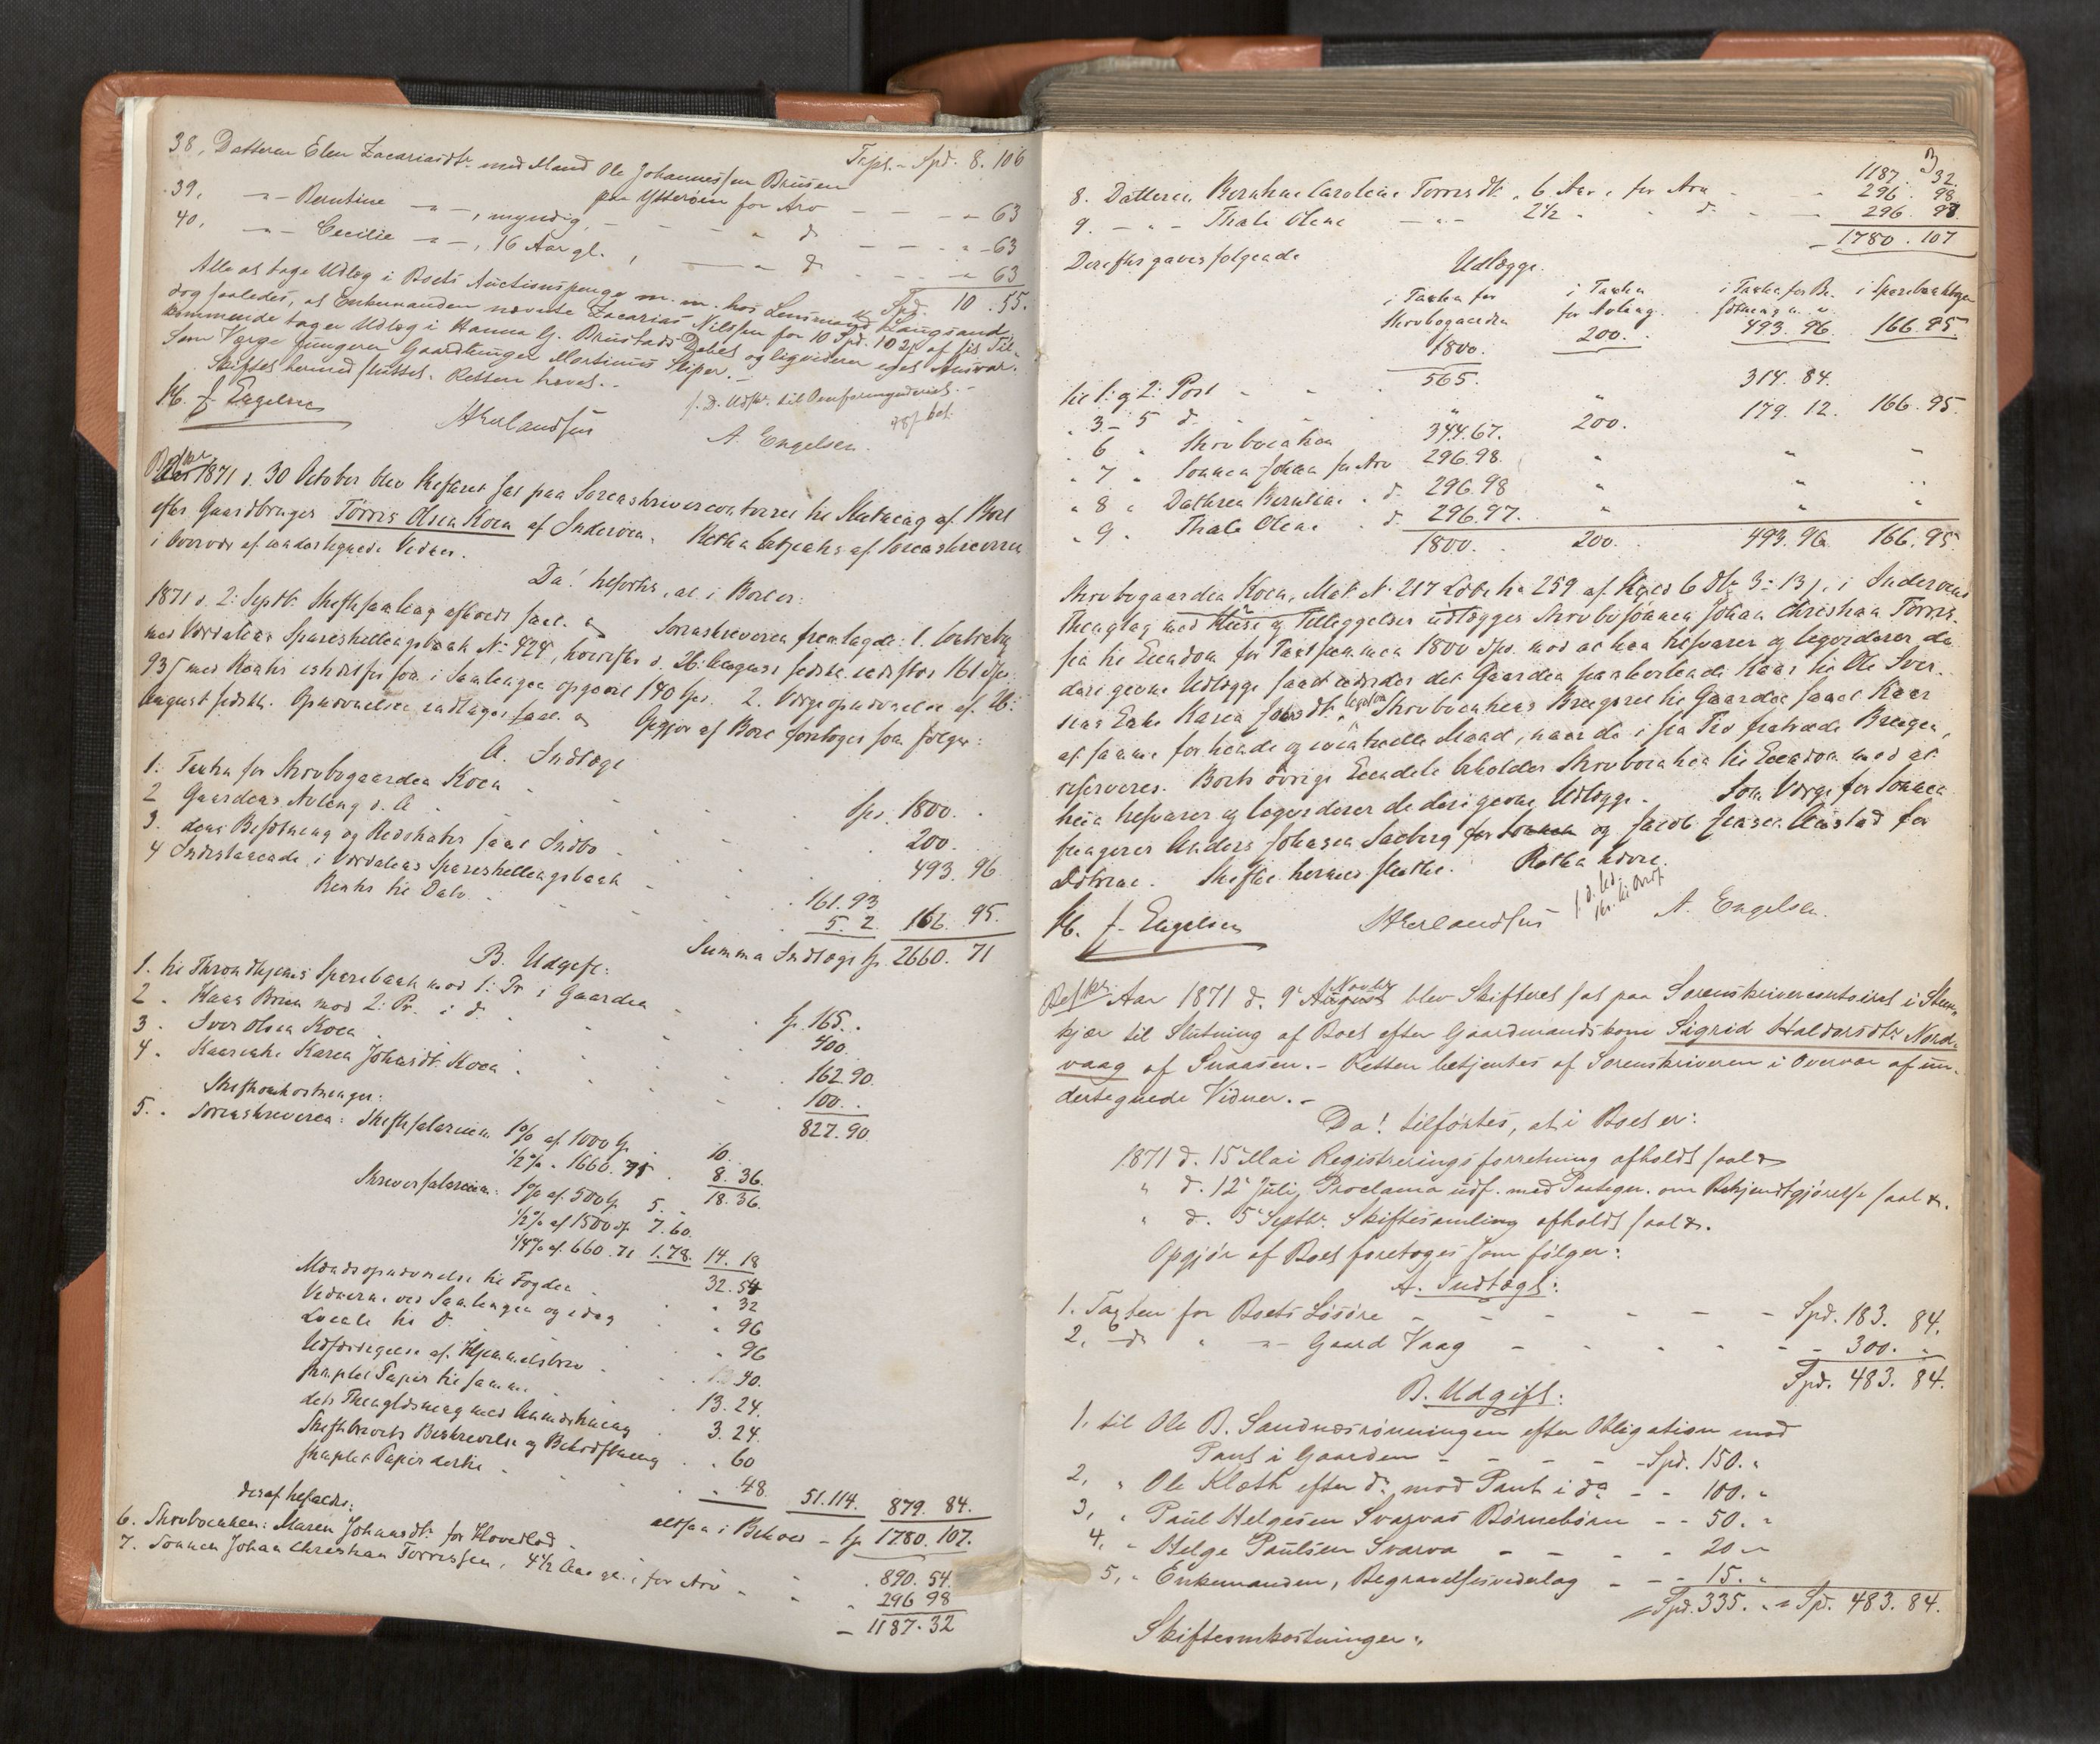 Tspt. - Spd. 8. 106
38, Datteren Elen Zacariasdtr. med Mand Ole Johannessen Bruseen
paa Ytterøen for Arv - - - " 63
39, -"- Berntine -"-, myndig, - - - " d - - - " - 63
40, -"- Cecilie -"-, 16 Aar gl. , - " d - - - " 63
Spd. 10 . 55.
Alle at tage Udlæg i Boets Auctionspenge m. m. hos Lensmand Laugsand,
dog saaledes, at Enkemanden nævnte Zacarias Nilssen for 10 Spd. 102 s af sit Til-
kommende tager Udlæg i Hanna G. Brustads Debet og liqviderer eget Ansvar.
Som Værge fungerer Gaardbruger Mortinus Sliper. -
Skiftet hermed sluttet. Retten hævet. -
M. J. Engelsen
HErlandsen
A. Engelsen.
Aar 1871 d. 30 October blev Skifteret sat paa Sorenskrivercontoiret til Slutning af Boet
efter Gaardbruger Törris Olsen Koen af Inderøen. Retten betjentes af Sorenskriveren
i Overvær af undertegnede Vidner.
Da! tilførtes, at i Boet er:
1871 d. 2: Septbr. Skiftesamling afholdt saal. Sorenskriveren fremlagde: 1. Contrabog
med Værdalens Spareskillingsbank No. 424, hvorefter d. 26: August sidstl. indestod 161 Spd.
93 s med Renter istedetfor som i Samlingen opgivet 140 Spd. 2. Værgeopnævnelse af 26:
August sidstl. Opnævnelsen indtages saal. Opgjør af Boet foretoges som følger:
A. Indtægt
1. Taxten for Skrubogaarden Koen - - - Spd. 1800. .
2 Gaardens Avling d. A - - - 200. .
3. dens Besætning og Redskaber samt Indbo - - 493. 96
4 Indestaaende i Værdalens Spareskillingsbank - 161. 93
Renter til Dato - - 5. 2. 166. 95.
Summa Indtægt Sp. 2660. 71
B. Udgift:
1. til Throndhjems Sparebank mod 1: Pr i Gaarden - - Sp. 165. .
2 . Hans Bruun mod 2: Pr. i d. - - 400.
3 . Iver Olsen Koen - - 162. 90.
4 . Kaarenke Karen Johnsdtr. Koen - - 100. .
827. 90.
Skifteomkostninger:
5. . Sorenskriveren: Skiftesalarium 1% af 1000 Sp. 10.
1/2% . 1660. 71 . 8. 36.
18. 36.
Skriversalarium: 1% af 500 Sp. 5. .
1/2% af 1500 Sp 7. 60.
1/4% af 660. 71 1. 78. 14. 18
32. 54
Mandsopnævnelse til Fogden . 32
Vidnerne ved Samlingen og idag . 96
Locale til D. . 96
Udfærdigelse af Hjemmelsbrev . 40.
stemplet Papir til samme . 13. 24.
dets Thinglæsning med Anmærkning 3. 24.
Skiftebrevets Beskrivelse og Bekræftning . 60
stemplet Papir dertil . 48. 51. 114. 879. 84.
altsaa i Behold - Sp 1780. 107.
deraf tilfalder:
6. Skrubo enken: Maren Johansdtr. for Hovedlod . 890. 54.
7. Sønnen Johan Christian Torrissen, 4 1/2 Aar gl., for Arv - . 296 98
- 1187. 32
3
1187. 32.
8. Datteren Bernhine Caroline Torrisdtr. , 6 Aar , for Arv - - 296. 98
9. - " - Thale Oline - " - 2 1/2 - " d. - 296. 98
- 1780. 107
Derefter gaves følgende
Udlægge.
i Taxten for i Taxten i Taxten for Be- i Sparebankbogen
Skrubogaarden for Avling. sætning m. v.
1800. 200. 493. 96. 166. 95.
til 1: og 2: Post - - 565. " 314. 84.
. 3 - 5 d. - - " 200. 179. 12. 166. 95.
. 6 . Skruboenken 344. 67. " " "
. 7 . Sønnen Johan for Arv 296. 98. " " "
. 8 . Datteren Berntine . d. 296. 98 " " "
. 9 . Thale Oline . d. 296. 97. " "
1800. . 200. . 493. 96 166. 95.
Skrubogaarden Koen, Mat. No. 217 Løbe No 259 af Skyld 6 Dlr. 3 - 13 s, i Inderøens
Thinglag med Huse og Tilleggelser udlægges Skrubosønnen Johan Christian Torris-
sen til Eiendom for Taxtsummen 1800 Spd. mod at han tilsvarer og liqviderer de
deri givne Udlægge samt udreder det Gaarden paaheftende Kaar til Ole Iver-
sens Enke Karen Johnsdtr. ligesom Skruboenkens Brugsret til Gaarden samt Kaar
af samme for hende og eventuelle Mand, naar de i sin Tid fratræde Brugen,
reserveres. Boets øvrige Eiendele beholder Skruboenken til Eiendom mod at
hun tilsvarer og liqviderer de deri givne Udlægge. Som Værge for Sønnen
fungerer Anders Johnsen Saeberg for Sønnen og Jacob Jensen Aaistad for
Døtrene. Skiftet hermed sluttet. Retten hævet.
M. J. Engelsen
HErlandsen
A. Engelsen.
Aar 1871 d. 9de August Novbr blev Skifteret sat paa Sorenskrivercontoiret i Sten-
kjær til Slutning af Boet efter Gaardmandskone Sigrid Haldorsdtr. Nord-
vaag af Snaasen. - Retten betjentes af Sorenskriveren i Overvær af un-
dertegnede Vidner. -
Da! tilførtes, at i Boet er:
1871 d. 15de Mai Registreringsforretning afholdt saal.
" d. 12te Juli, Proclama udf. med Paategn. om Bekjendtgjørelse saal.
" d. 5te Septbr. Skiftesamling afholdt saal.
Opgjør af Boet foretoges som følger:
A. Indtægt:
1. Taxten for Boets Løsøre - - - - Spd. 183. 84.
2, - do " -"- Gaard Vaag - - - - 300. "
Spd. 483. 84.
B. Udgift:
1, til Ole B. Sandnæsrønningen efter Obligation med
Pant i Gaarden - - - - Spd. 150. "
2, " Ole Klæth efter do, mod Pant i do - - 100. "
3, " Paul Helgesen Svarvas Børnebørn - - 50. "
4, " Helge Paulsen Svarva - - - 20 "
5, " Enkemanden, Begravelsesvederlag - - 15. "
Spd. 335. " Spd. 483. 84.
Skifteomkostninger: